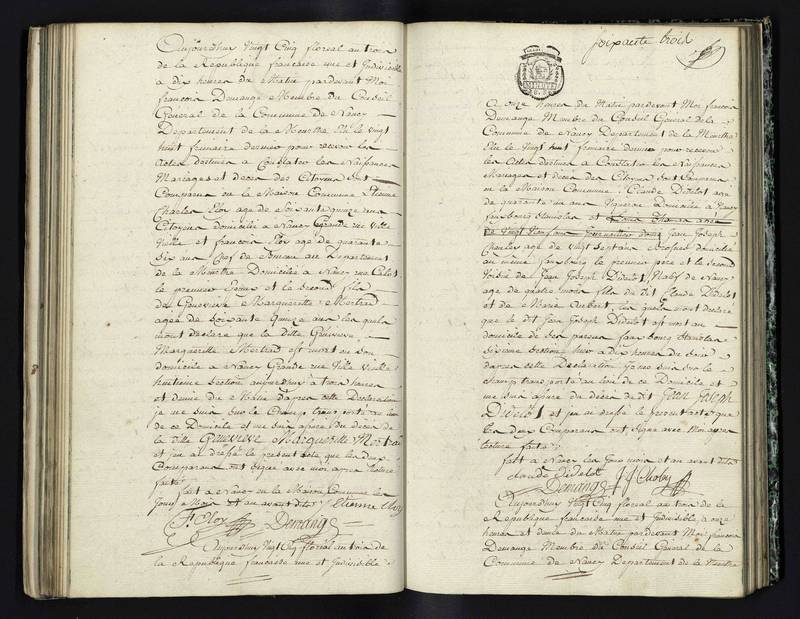 Aujourdhuy Vingt Cinq floréal an trois
de la Republique francaise une et Indivisible
a dix heures du Matin pardevant Moi
francois Demange Membre du Conseil
Général de la Commune de Nancy
Departement de la Meurthe Elu le vingt
huit frimaire dernier pour recevoir les
actes destinés a Constater les Naissances
Mariages et deces des Citoyens sont
Comparus en la Maison Commune Etienne
Charles Eloy age de Soixante quinze ans
Citoyen domicilié a Nancy Grande rue Ville
Vieille et francois Eloy age de quarante
Six ans Chef de Bureau au Departement
de la Meurthe Domicilié a Nancy rue Callot
le premier Epoux et le second fils
de Genevieve Marguerite Mertrad
agée de Soixante Quinze ans les quels
m'ont declaré que la ditte Genevieve
Marguerite Mertrad est morte en son
domicile a Nancy Grande rue Ville Vieille
huitieme Section aujourdhuy a trois heures
et demie du Matin dapres cette Declaration
je me suis sur le Champ transporté au lieu
de ce Domicile et me suis assuré du deces de
la ditte Genevieve Marguerite Mertrad
et j'en ai dressé le present acte que les deux
Comparans ont signé avec moi apres lecture
faite
fait a Nancy en la Maison Commune les
Jour Mois et an avant dits Etienne Eloy
F. Eloy Demange
Aujourdhuy Vingt Cinq floréal an trois de
la Republique francaise une et Indivisible
soixante trois
a onze heures du Matin pardevant Moi francois
Demange Membre du Conseil General de la
Commune de Nancy Departement de la Meurthe
Elu le Vingt huit frimaire dernier pour recevoir
les actes destinés a Constater les Naissances
Mariages et deces des Citoyens sont Comparus
en la Maison Commune Claude Didelot age
de quarante un ans Vigneron Domicilié a Nancy
fauxbourg Stanislas et
Jean Joseph
Charles age de vingt sept ans domicilié
au meme fauxbourg le premier pere et le second
de Jean Joseph Didelot Natif de Nancy
age de quatre mois fils du dit Claude Didelot
et de Marie Aubert les quels m'ont declaré
que le dit Jean Joseph Didelot est mort au
domicile de ses pere fauxbourg Stanislas
Sixieme Section hier a dix heures du Soir
dapres cette Declaration je me suis sur le
champ transporté au lieu de ce Domicile et
me suis assuré du deces du dit Jean Joseph
Didelot et j'en ai dressé le present acte que
les deux Comparans ont signé avec Moi apres
lecture faite
fait a Nancy les Jour mois et an avant dits
claude Didelot
Demange
Aujourdhuy Vingt Cinq floréal an trois de la
Republique francaise une et Indivisible a onze
heures et demie du Matin pardevant Moi francois
Demange Membre du Conseil General de la
Commune de Nancy Departement de la Meurthe